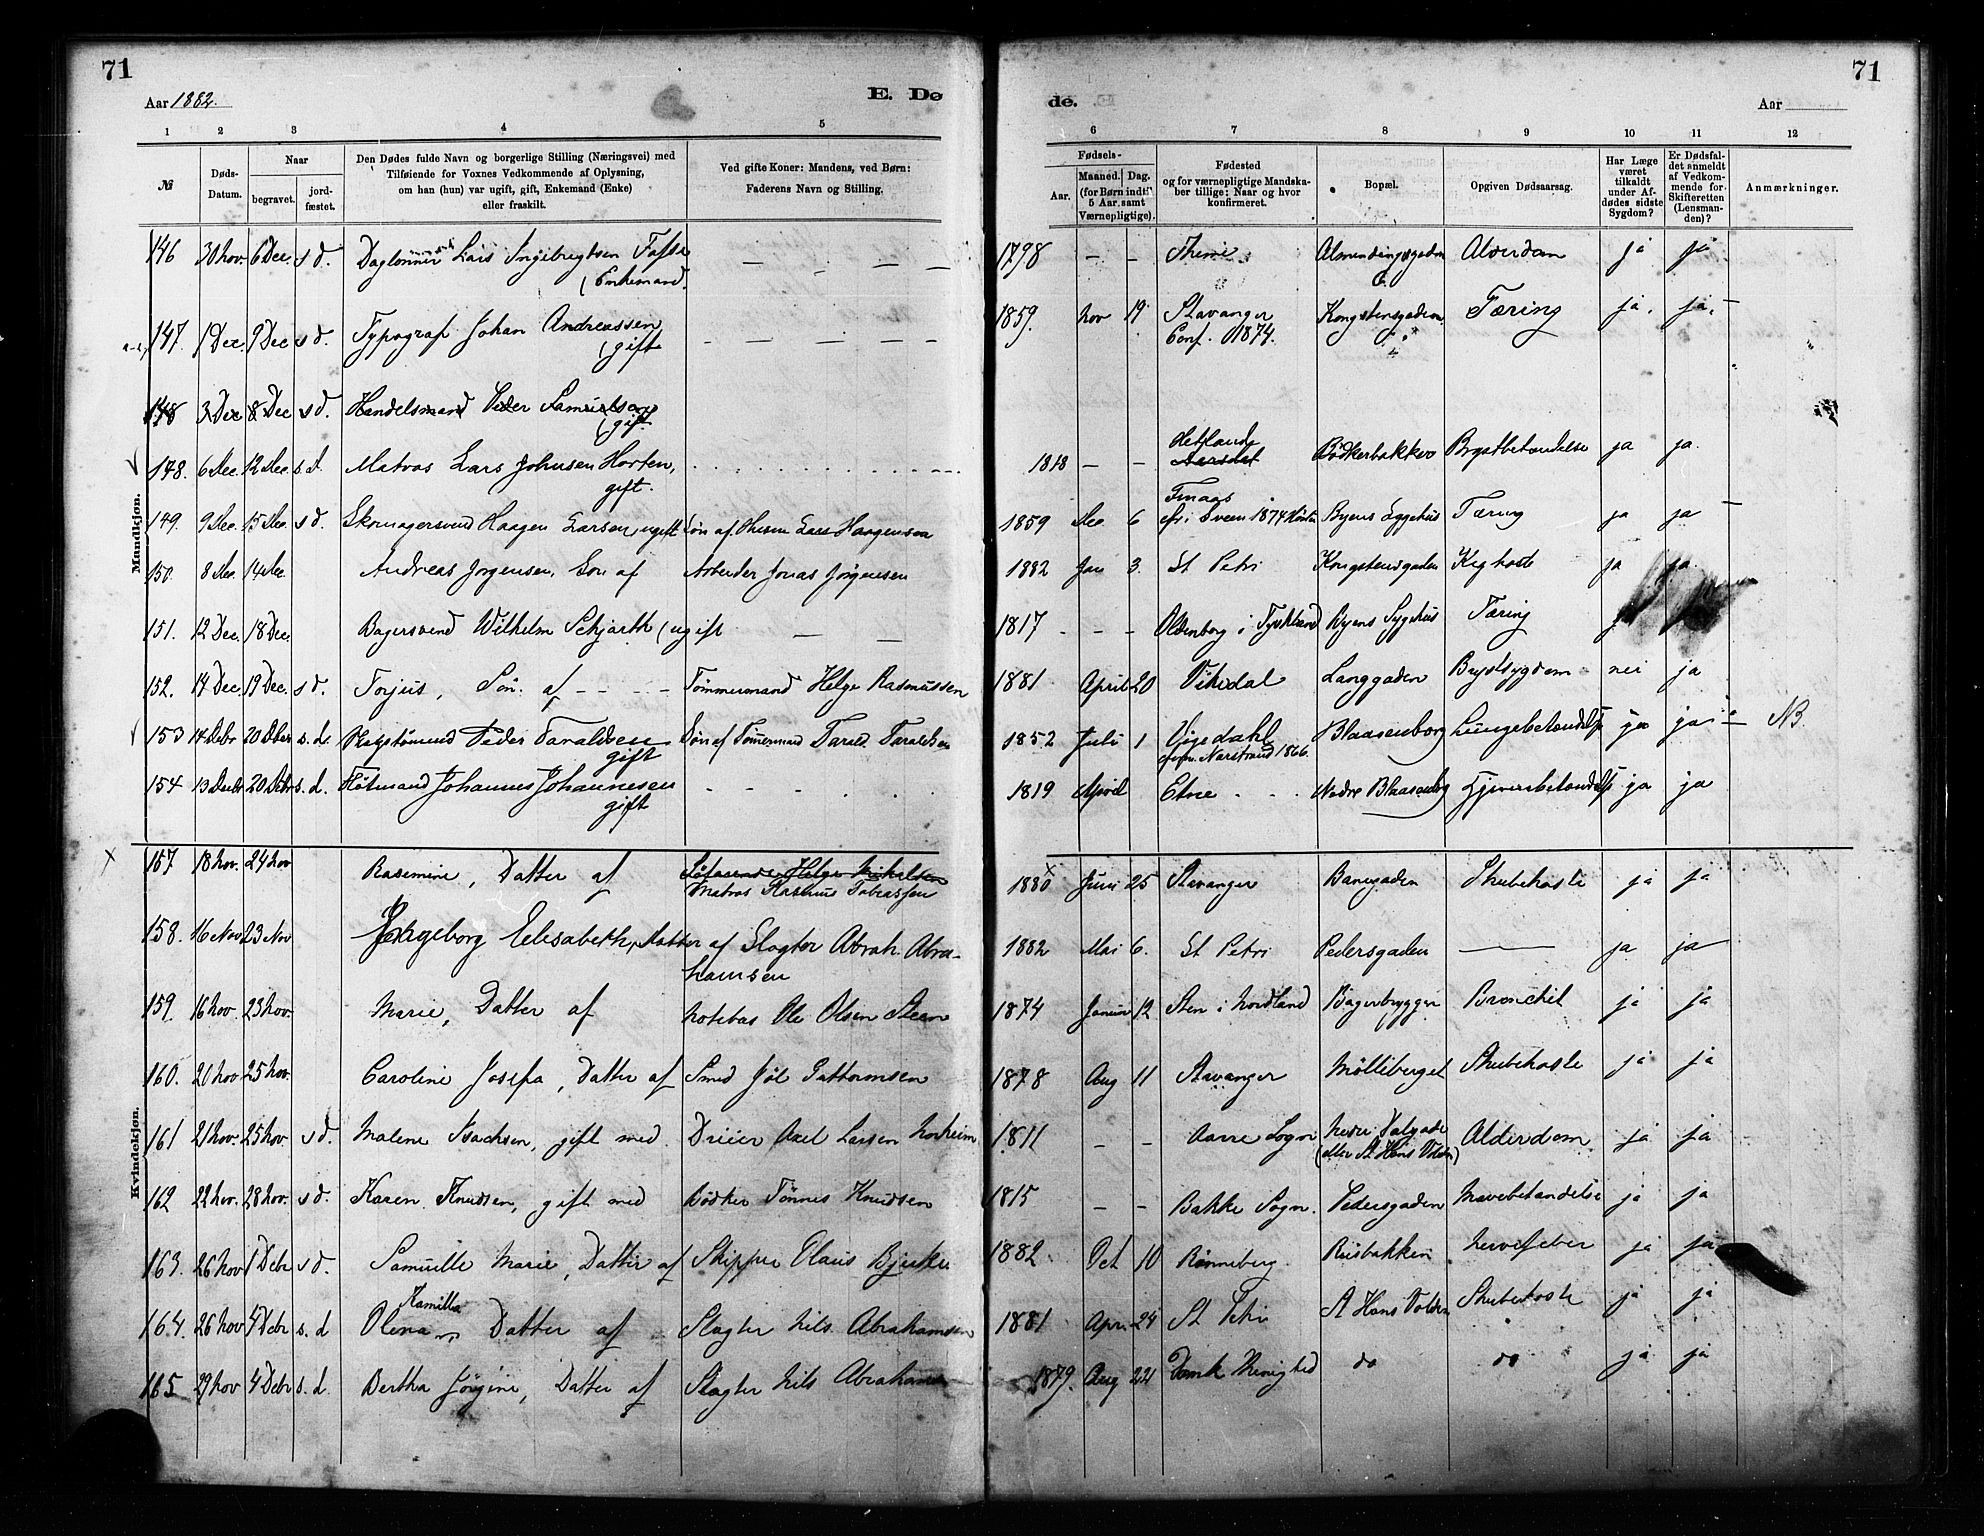 71
71
Aar 1882.
E. Dø
de.
Aar
1 2 3 4 5 6 7 8 9 10 11 12
№
Døds-Datum.
Naar
begravet.
jord-fæstet.
Den Dødes fulde Navn og borgerlige Stilling (Næringsvei) med
Tilføiende for Voxnes Vedkommende af Oplysning,
om han (hun) var ugift, gift, Enkemand (Enke)
eller fraskilt.
Ved gifte Koner: Mandens, ved Børn:
Faderens Navn og Stilling.
Fødsels-
Aar.
Maaned. Dag.
(for Børn indtil
5 Aar samt
Værnepligtige).
Fødested
og for værnepligtige Mandska-
ber tillige: Naar og hvor
konfirmeret.
Bopæl.
Opgiven Dødsaarsag.
Har Læge
været
tilkaldt
under Af-
dødes sidste
Sygdom?
Er Dødsfal-
det anmeldt
af Vedkom-
mende for
Skifteretten
(Lensman-
den)?
Anmærkninger.
Mandkjøn.
146 30 Nov. 6 Dec. s d. Daglønner Lars Ingebregtsen — — — — 1798 — — Almendingsgaden Alderdom ja ja
(Enkemand.
147. 1 Dec. 9 Dec s d. Typograf Johan Andreassen — — — — — 1859. Nov 19. Stavanger Kongstensgaden Tæring ja. ja.
(gift Conf. 1874.
148 3 Dec 8 Dec s d. Handelsmand Peder Samuelsen
(gift
148. 6 Dec. 12 Dec. s d. Matros Lars Johnsen Horten, 1818 — — Hetland Bødkerbakken Brystbetændelse ja ja.
gift.
149. 9 Dec. 15 Dec. s d. Skomagersvend Haagen Larsen, ugift Søn af Lars Haagensen 1859 Dec 6 Byens Sygehus Tæring ja ja
150. 8 Dec. 14 Dec. Andreas Jørgensen, Søn af Arbeider Jonas Jørgensen 1882 Jan 3. St Petri Kongstensgaden Kighoste ja ja.
151. 12 Dec. 18 Dec. Bagersvend Wilhelm (ugift — — 1817 - - - Oldenborg i Tyskland Byens Sygehus Tæring
152. 14 Dec. 19 Dec. s d. Torjus, Søn af - - - - Tømmermand Helge Rasmussen 1881 April 20 Vikedal Langgaden Brystsygdom nei ja
153 14 Decbr 20 Dcbr s. d. Peder Taraldsen Søn af Tømmermand Tarald Taraldsen 1852 Juli 1 Blaasenborg Lungebetændelse ja ja NB.
gift Narstrand 1866.
154 13 Decbr 20 Dcbr s. d. Johannes Johannesen - - - . . 1819 April Etne - - Nedre Blaasenborg ja ja
gift
Kvindekjøn.
157 18 Nov. 24 Nov Rasmine, Datter af Helge Mikelsen 1880 Juni 25 Stavanger Banegaden Strubehoste ja ja
Matros Rasmus Tobiassen
158. 16 Nov 23 Nov Ingeborg Elisabeth, Datter af Slagter Abrah. Abra- 1882 Mai 6. St Petri Pedersgaden — ja ja
hamsen
159. 16 Nov. 23 Nov. Marie, Datter af Notebas Ole Olsen Steen 1874 Januar 12 Sten i Nordland Bagerbryggen Bronchit ja ja
160. 20 Nov 25 Nov. Caroline Josefa, Datter af Smed Jol Guttormsen 1878 Aug 11 Stavanger Mølleberget Strubehoste ja ja
161 21 Nov. 25 Nov. s d. Malene Isachsen, gift med Dreier Axel Larsen Norheim 1811 — — Aarre Sogn Nedre Dalgade Alderdom ja ja
(eller St Hans Volden)
162 22 Nov. 28 Nov. s d. Karen Knudsen, gift med Bødker Tønnes Knudsen 1815 — — Bakke Sogn. Pedersgaden Mavebetændelse ja ja
163. 26 Nov 1 Debr s d. Samuelle Marie, Datter af Skipper Claus Bjerke 1882 Oct 10 Rønneberg Risbakken Nervefeber ja ja
164. 26 Nov 4 Debr s. d Olena Kamilla Datter af Slagter Nils Abrahamsen 1881 Apr. 24 St Petri St Hans Volden Strubehoste ja ja
165 29 Nov 4 Debr s. d. Bertha Jørgine, Datter af Slagter Nils Abrahamsen 1879. Aug 22 Domk Menighed do do ja ja